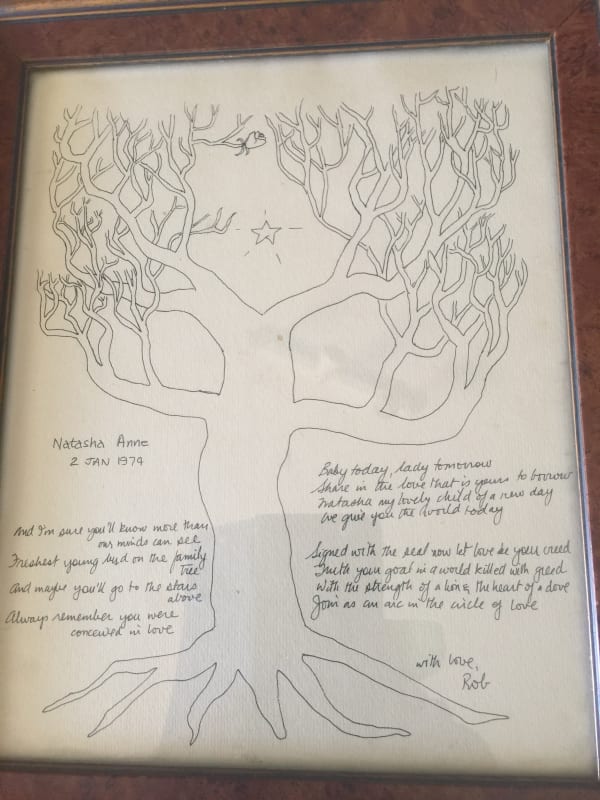 Natasha Anne
2 JAN 1974
Baby today, lady tomorrow
Share in the love that is yours to borrow
Natasha my lovely child of a new day
We give you the world today
And I'm sure you'll know more than
our minds can see
Freshest young bud on the family
Tree
And maybe you'll go to the stars
above
Always remember you were
conceived in love
Signed with the seal now let love be your creed
Truth your goal in a world killed with greed
With the strength of a lion & the heart of a dove
Join as an arc in the circle of love
with love,
Rob